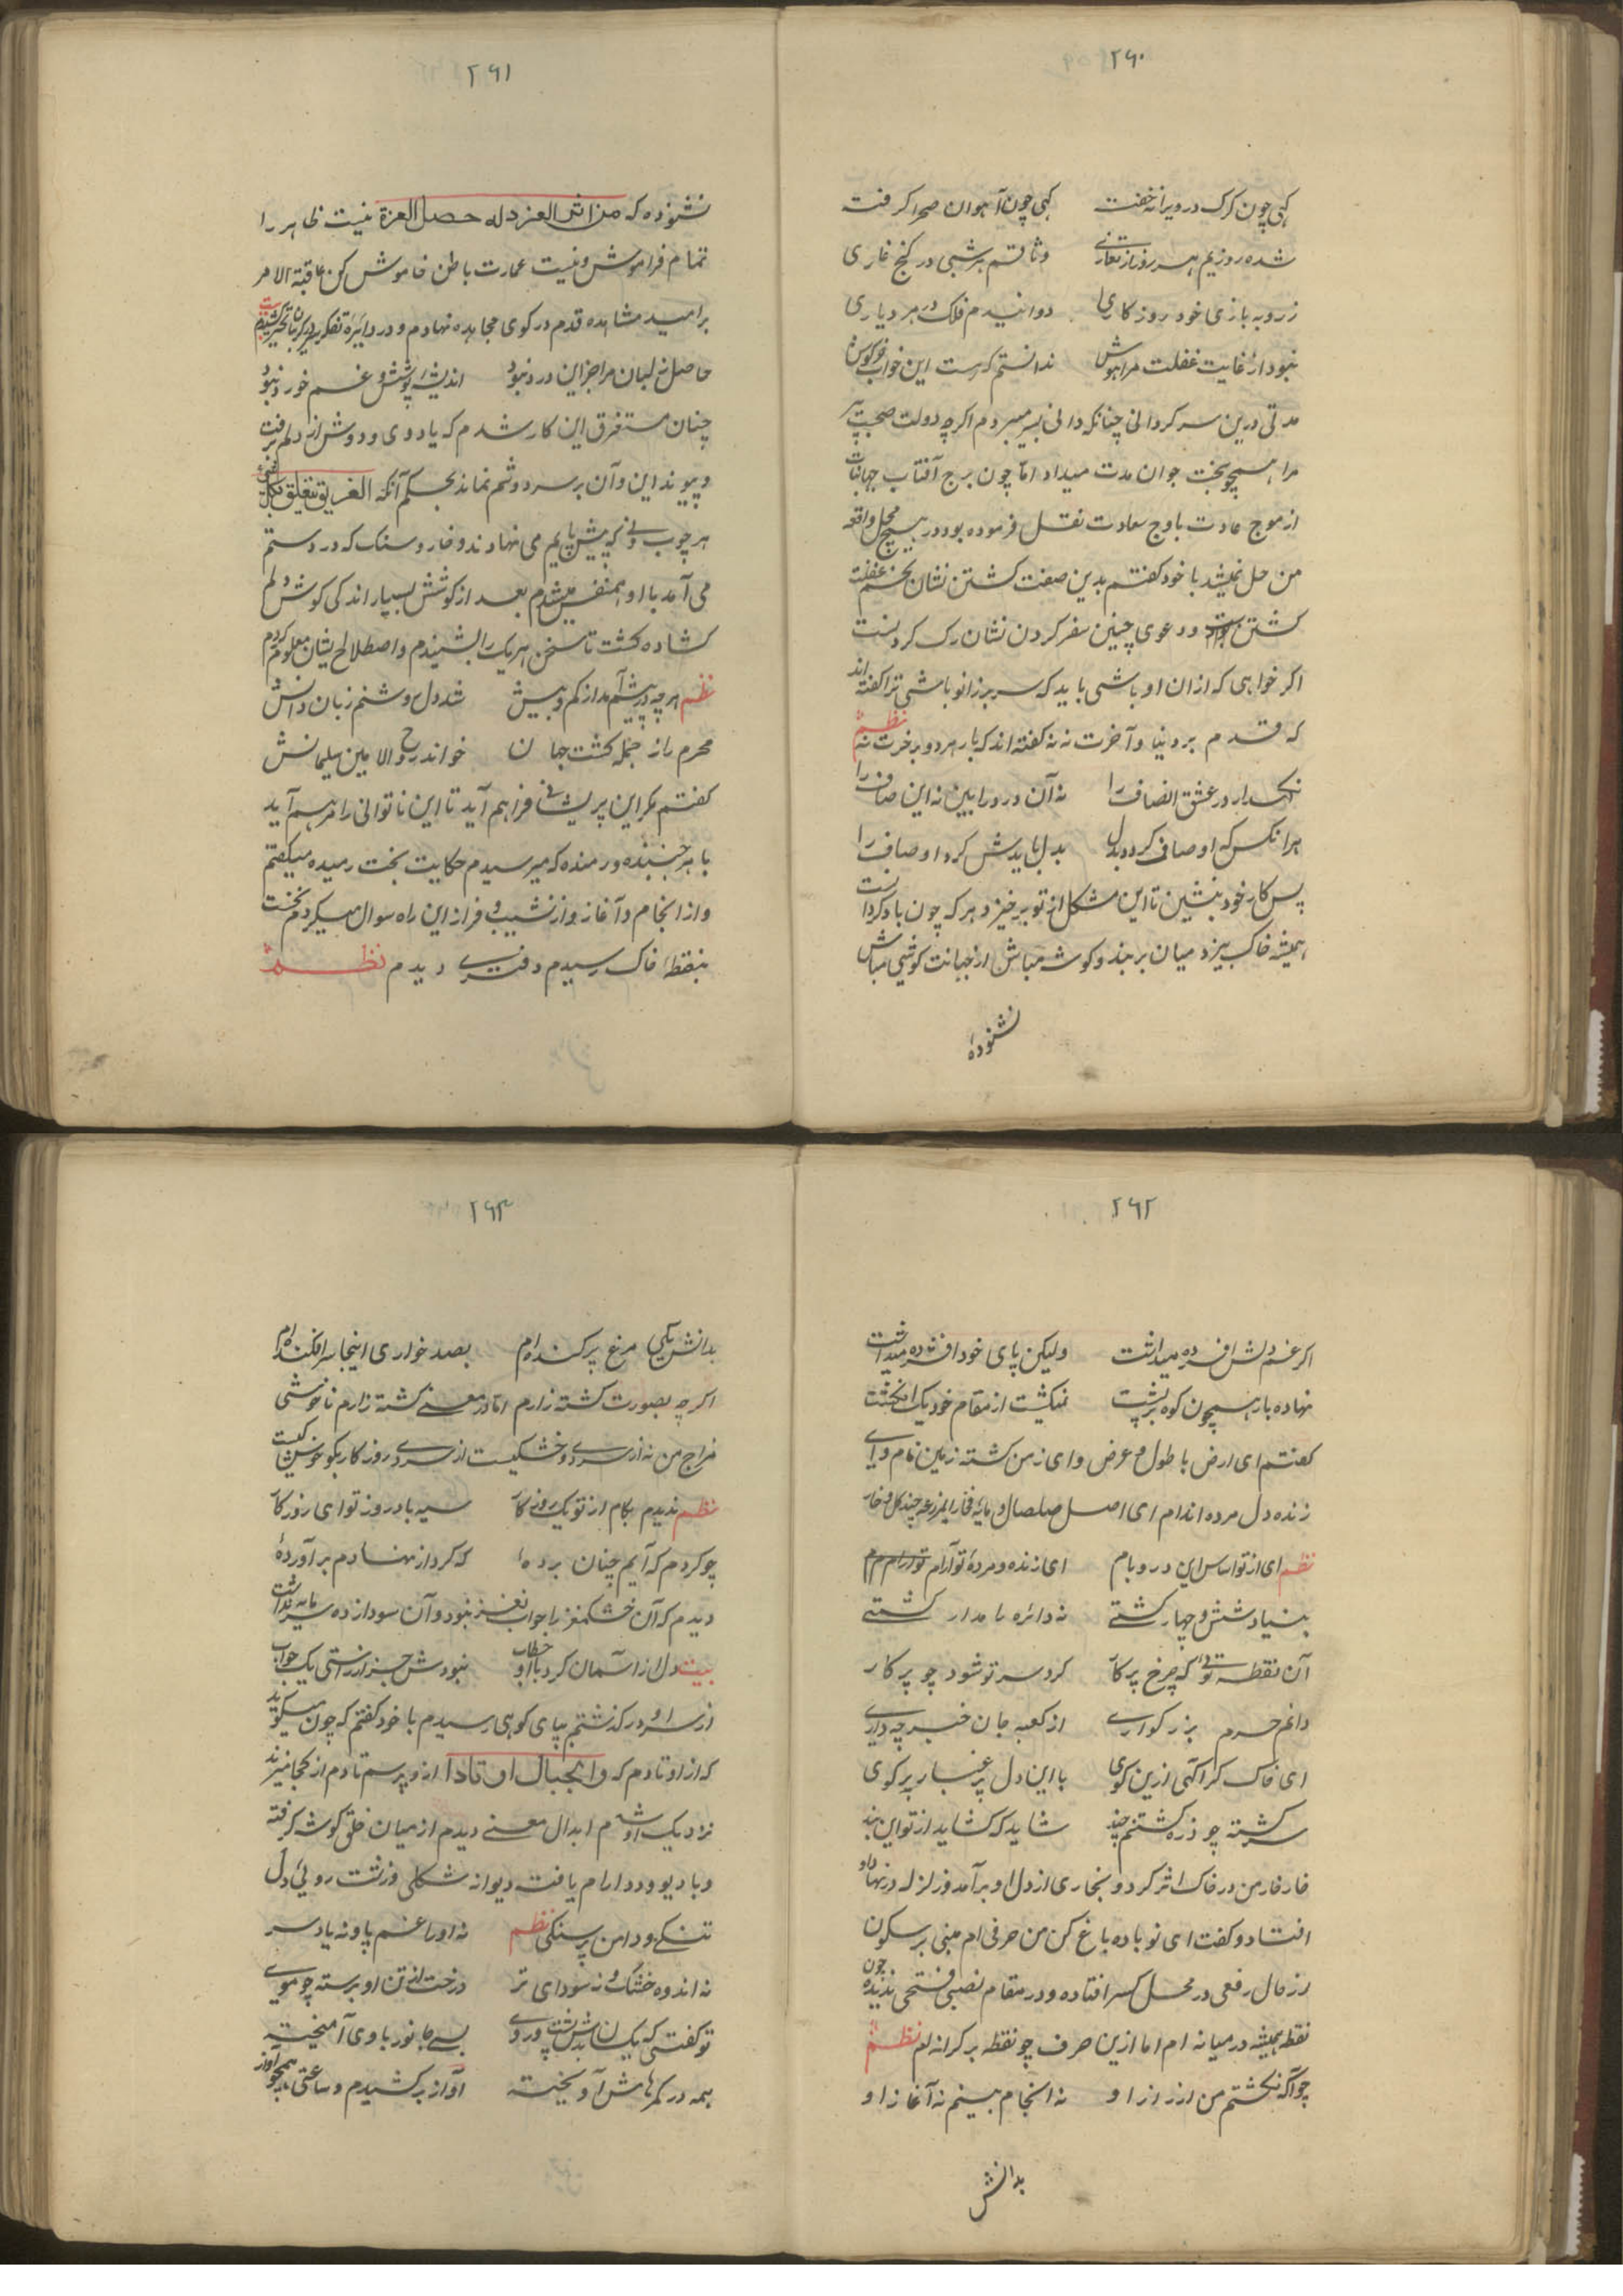 ۲۶۰
کهی چون کرک در ویرانه خفت کهی چون آهوان صحرا کرفت
شده روزیم هر روز از وثاقم هر شبی در کنج غاری
ز روبه بازی خود روزکاری دوانیدم فلک در هر دیاری
نبود از غایت غفلت مرا هوش ندانستم که هست این خواب خرکوش
مدتی درین سرکردانی چنانکه دانی بسر میبردم اکرچه دولت صحبت پیر
مرا همچو بخت جوان مدت میداد اما چون برج آفتاب جهانتاب
از موج عادت باوج سعادت نقل فرموده بود در هیچ محل واقعه
من حل نمیشد با خود کفتم بدین صفت کشتن نشان تخم غفلت
کشتن است ودعوی چنین سفر کردن نشان ترک کردنست
اکر خواهی که از ان او باشی باید که سر بر زانو باشی ترا کفته اند
که قدم بر دنیا و آخرت نه نه کفته اند که بار هر دو بر خرت نه نظم
نکهدار در عشق انصاف را نه آن درد را بین نه این صاف را
هر انکس که او صاف کردد بدل بدل بایدش کرد اوصاف را
پس کار خود بنشین تا این مشکل از تو بر خیزد هر که چون باد کردانست
همیشه خاک بیزد میان بربند و کوشه مباش از خیانت کوشی مباش
نشنوده
۲۶۱
نشنوده که من اثر العزله حصل العزة نیست ظاهر را
تمام فراموش و نیست عمارت باطن خاموش کن عاقبة الامر
بر امید مشاهده قدم در کوی مجاهده نهادم و در دائره تفکر
حاصل ز لبان مرا جز این درد نبود اندیشه پوشش و غم خورد نبود
چنان مستغرق این کار شدم که یاد وی و دوش از دلم برفت
و پیوند این و آن بر سر دوشم نماند بحکم آنکه الغریق یتعلق بکل شیء
هر چوب و نی که پیش پایم می نهادند و خار و سنک که در دستم
می آمد با او همنفس میشدم بعد از کوشش بسیار اندکی کوش دلم
کشاده کشت تا سخن هر یک را بشنیدم و اصطلاح ایشان معلوم کردم
نظم هر چه در پیشم آمد از کم و بیش شد دل روشنم زبان دانش
محرم راز جمله کشت جهان خواند روح الامین سلیمانش
کفتم مکر این پریشانی فراهم آید تا این ناتوانی را مرهم آید
با هر جنبنده و رمنده که میرسیدم حکایت بخت رمیده میکفتم
و از انجام و آغاز و از نشیب و فراز این راه سوال میکردم نخست
بنقطه خاک رسیدم دفتری دیدم نظم
۲۶۲
اکر غم دلش افسرده میداشت ولیکن پای خود افشرده میداشت
نهاده بار همچون کوه بر پشت نمیکشت از مقام خود یک انکشت
کفتم ای ارض با طول و عرض و ای زمن کشته زمین نام و ای
زنده دل مرده اندام ای اصل صلصال و مایه فخار ای مزرعه چند کل و خار
نظم ای از تو اساس این در و بام ای زنده و مرده تو آرام
بنیاد شش و چهار کشتی نه دائره را مدار کشتی
آن نقطه توئی که چرخ پرکار کرد سر تو شود چو پرکار
دانم حرم بزرکواری از کعبه جان خبر چه داری
ای خاک کرا آکهی ازین کوی با این دل پر غبار بر کوی
سرکشته چو ذره کشتنم چند شاید که کشاید از تو این بند
خار خار من در خاک اثر کرد و بخاری از دل او برآمد و زلزله در نهاد او
افتاد و کفت ای نوباده باغ کن من حرفی ام مبنی بر سکون
از حال رفعی در محل کسر افتاده و در مقام نصبی فتحی ندیده چون
نقطه همیشه در میانه ام اما ازین حرف چو نقطه بر کرانه ام نظم
چو آکه نکشتم من از راز او نه انجام بینم نه آغاز او
بدانش
۲۶۳
بدانش یکی مرغ پر کنده ام بصد خواری اینجا سر افکنده ام
اکرچه بصورت کشته زارم اما در معنی کشته زارم ناخوشی
مزاج من نه از سردی و خشکیست از سردی روزکار بکو خوش کیست
نظم ندیدم بکام از تو یک روزه کار سیه باد روز تو ای روزکار
چو کردم که آیم چنان برده که کرد از نهادم بر آورده
دیدم که آن خشک مغز را جواب نغز نبود و آن سودا زده سر مایه نداشت
بیت دل از آسمان کرد با او خطاب نبودش جز از راستی یک جواب
از سر او در کذشتم بپای کوهی رسیدم با خود کفتم که چون میکوید
که از اوتادم که والجبال اوتادا از و پرسم تا دم از کجا میزند
نزدیک او شدم ابدال معنی دیدم از میان خلق کوشه کرفته
و با دیو و دد ارام یافته دیوانه شکلی زشت روئی دل
تنکی و دامن پر سنکی نظم نه او را غم پا و نه یاد سر
نه اندوه خشک و نه سودای تر درخت از تن او برسته چو موی
تو کفتی که یکسان بدش پشت و روی بسی جانور با وی آمیخته
همه در کمرهاش آویخته آواز بر کشیدم و ساعتی با او همچو آواز